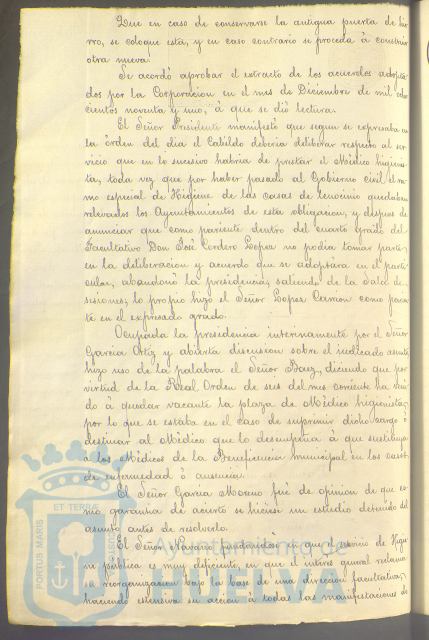 Que en caso de conservarse la antigua puerta de hie
rro, se coloque esta, y en caso contrario se proceda á construir
otra nueva.
Se acordó aprobar el extracto de los acuerdos adopta
dos por la Corporacion en el mes de Diciembre de mil ocho
cientos noventa y uno, á que se dió lectura.
El Señor Presidente manifestó que segun se expresaba en
la órden del dia el Cabildo deberia deliberar respecto al ser
vicio que en lo sucesivo habria de prestar el Médico higienis
ta, toda vez que por haber pasado al Gobierno Civil el ra
mo especial de Higiene de las casas de lenocinio quedaban
relevados los Ayuntamientos de esta obligacion, y despues de
anunciar que como pariente dentro del cuarto grado del
Facultativo Don José Cordero Lopez no podia tomar parte
en la deliberacion y acuerdo que se adoptára en el parti
cular, abandonó la presidencia, saliendo de la Sala de
sesiones; lo propio hizo el Señor Lopez Carrion como parien
te en el expresado grado.
Ocupada la presidencia interinamente por el Señor
Garcia Ortiz y abierta discusion sobre el indicado asunto
hizo uso de la palabra el Señor Baez, diciendo que por
virtud de la Real Orden de seis del mes corriente ha veni
do á quedar vacante la plaza de Médico higienista,
por lo que se estaba en el caso de suprimir dicho cargo ó
destinar al Médico que lo desempeña á que sustituya
á los Médicos de la Beneficencia municipal en los casos
de enfermedad ó ausencia.
El Señor Garcia Moreno fué de opinion de que co
mo garantia de acierto se hiciese un estudio detenido del
asunto antes de resolverlo.
El Señor Navarro, fundandose en que el servicio de Higie
ne pública es muy deficiente, en que el interés general reclama
su reorganizacion bajo la base de una direccion facultativa,
haciendo estensiva su accion á todas las manifestaciones de
PORTUS MARIS
ET TERRAE
Ayuntamiento de
HUELVA